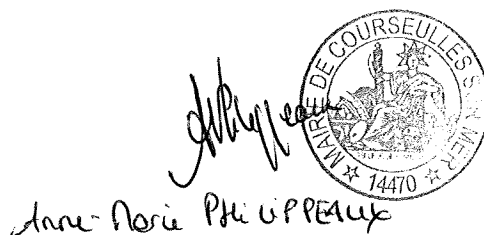 MAIRIE DE COURSEULLES S/MER
14470
Anne-Marie PHiLiPPEAUX